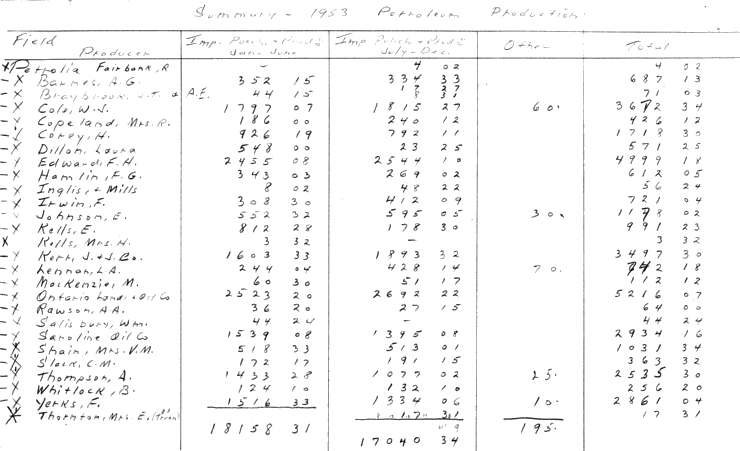 Summary - 1953 Petroleum Production
Field Producer Imp. Purch. + Prod'n Jan.-June Imp. Purch. + Prod'n July-Dec. Other Total
Petrolia Fairbank, R - 4 02 4 02
Barnes, A.G. 352 15 334 33 687 13
Braybrook, J.T. & A.E. 44 15 71 03
Cole, W.J. 1797 07 1815 27 60. 3672 34
Copeland, Mrs. R. 186 00 240 12 426 12
Corey, H. 926 19 792 11 1718 30
Dillon, Laura 548 00 23 25 571 25
Edward, F.H. 2455 08 2544 10 4999 18
Hamlin, F.G. 343 03 269 02 612 05
Inglis, + Mills 8 02 48 22 56 24
Irwin, F. 308 30 412 09 721 04
Johnson, E. 552 32 595 05 30. 1178 02
Kells, E. 812 28 178 30 991 23
Kells, Mrs. H. 3 32 - 3 32
Kerr, J. + J. Co. 1603 33 1893 32 3497 30
Lennan, L.A. 244 04 428 14 70. 742 18
MacKenzie, M. 60 30 51 17 112 12
Ontario Land + Oil Co 2523 20 2692 22 5216 07
Rawson, A.A. 36 20 27 15 64 00
Salisbury, Wm. 44 24 - 44 24
Saroline Oil Co 1539 08 1395 08 2934 16
Shain, Mrs. V.M. 518 33 513 01 1031 34
Slack, C.M. 172 17 191 15 363 32
Thompson, A. 1433 28 1077 02 25. 2535 30
Whitlock, B. 124 10 132 10 256 20
Yerks, F. 1516 33 1334 06 10. 2861 04
Thornton, Mrs. E. 17 31
18158 31 17040 34 195.